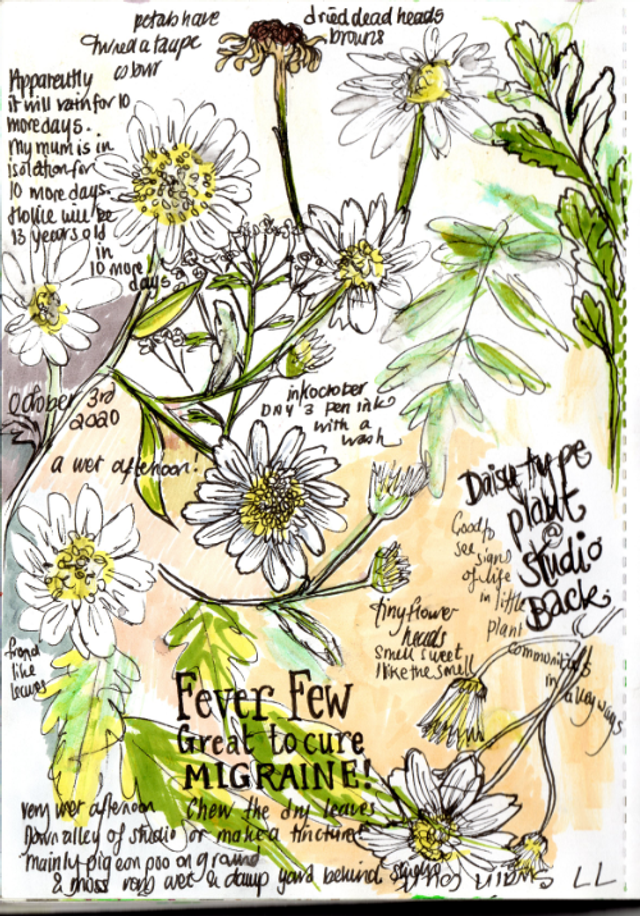 petals have
turned a taupe
colour
dried dead heads
browns
Apparently
it will rain for 10
more days.
My mum is in
isolation for
10 more days.
Hollie will be
13 years old
in
10 more
days
October 3rd
2020
a wet afternoon!
inkoctober
DAY 3 pen ink
with a
wash
Daisy type
plant
@
studio
Back.
Good to
see signs
of life
in little
plant
communities
in alleyways
tiny flower
heads
smell sweet
I like the smell
frond
like
leaves
Fever Few
Great to cure
MIGRAINE!
Chew the dry leaves
or make a tincture
very wet afternoon
Down alley of studio
mainly pigeon poo on ground
& moss very wet & damp yard behind